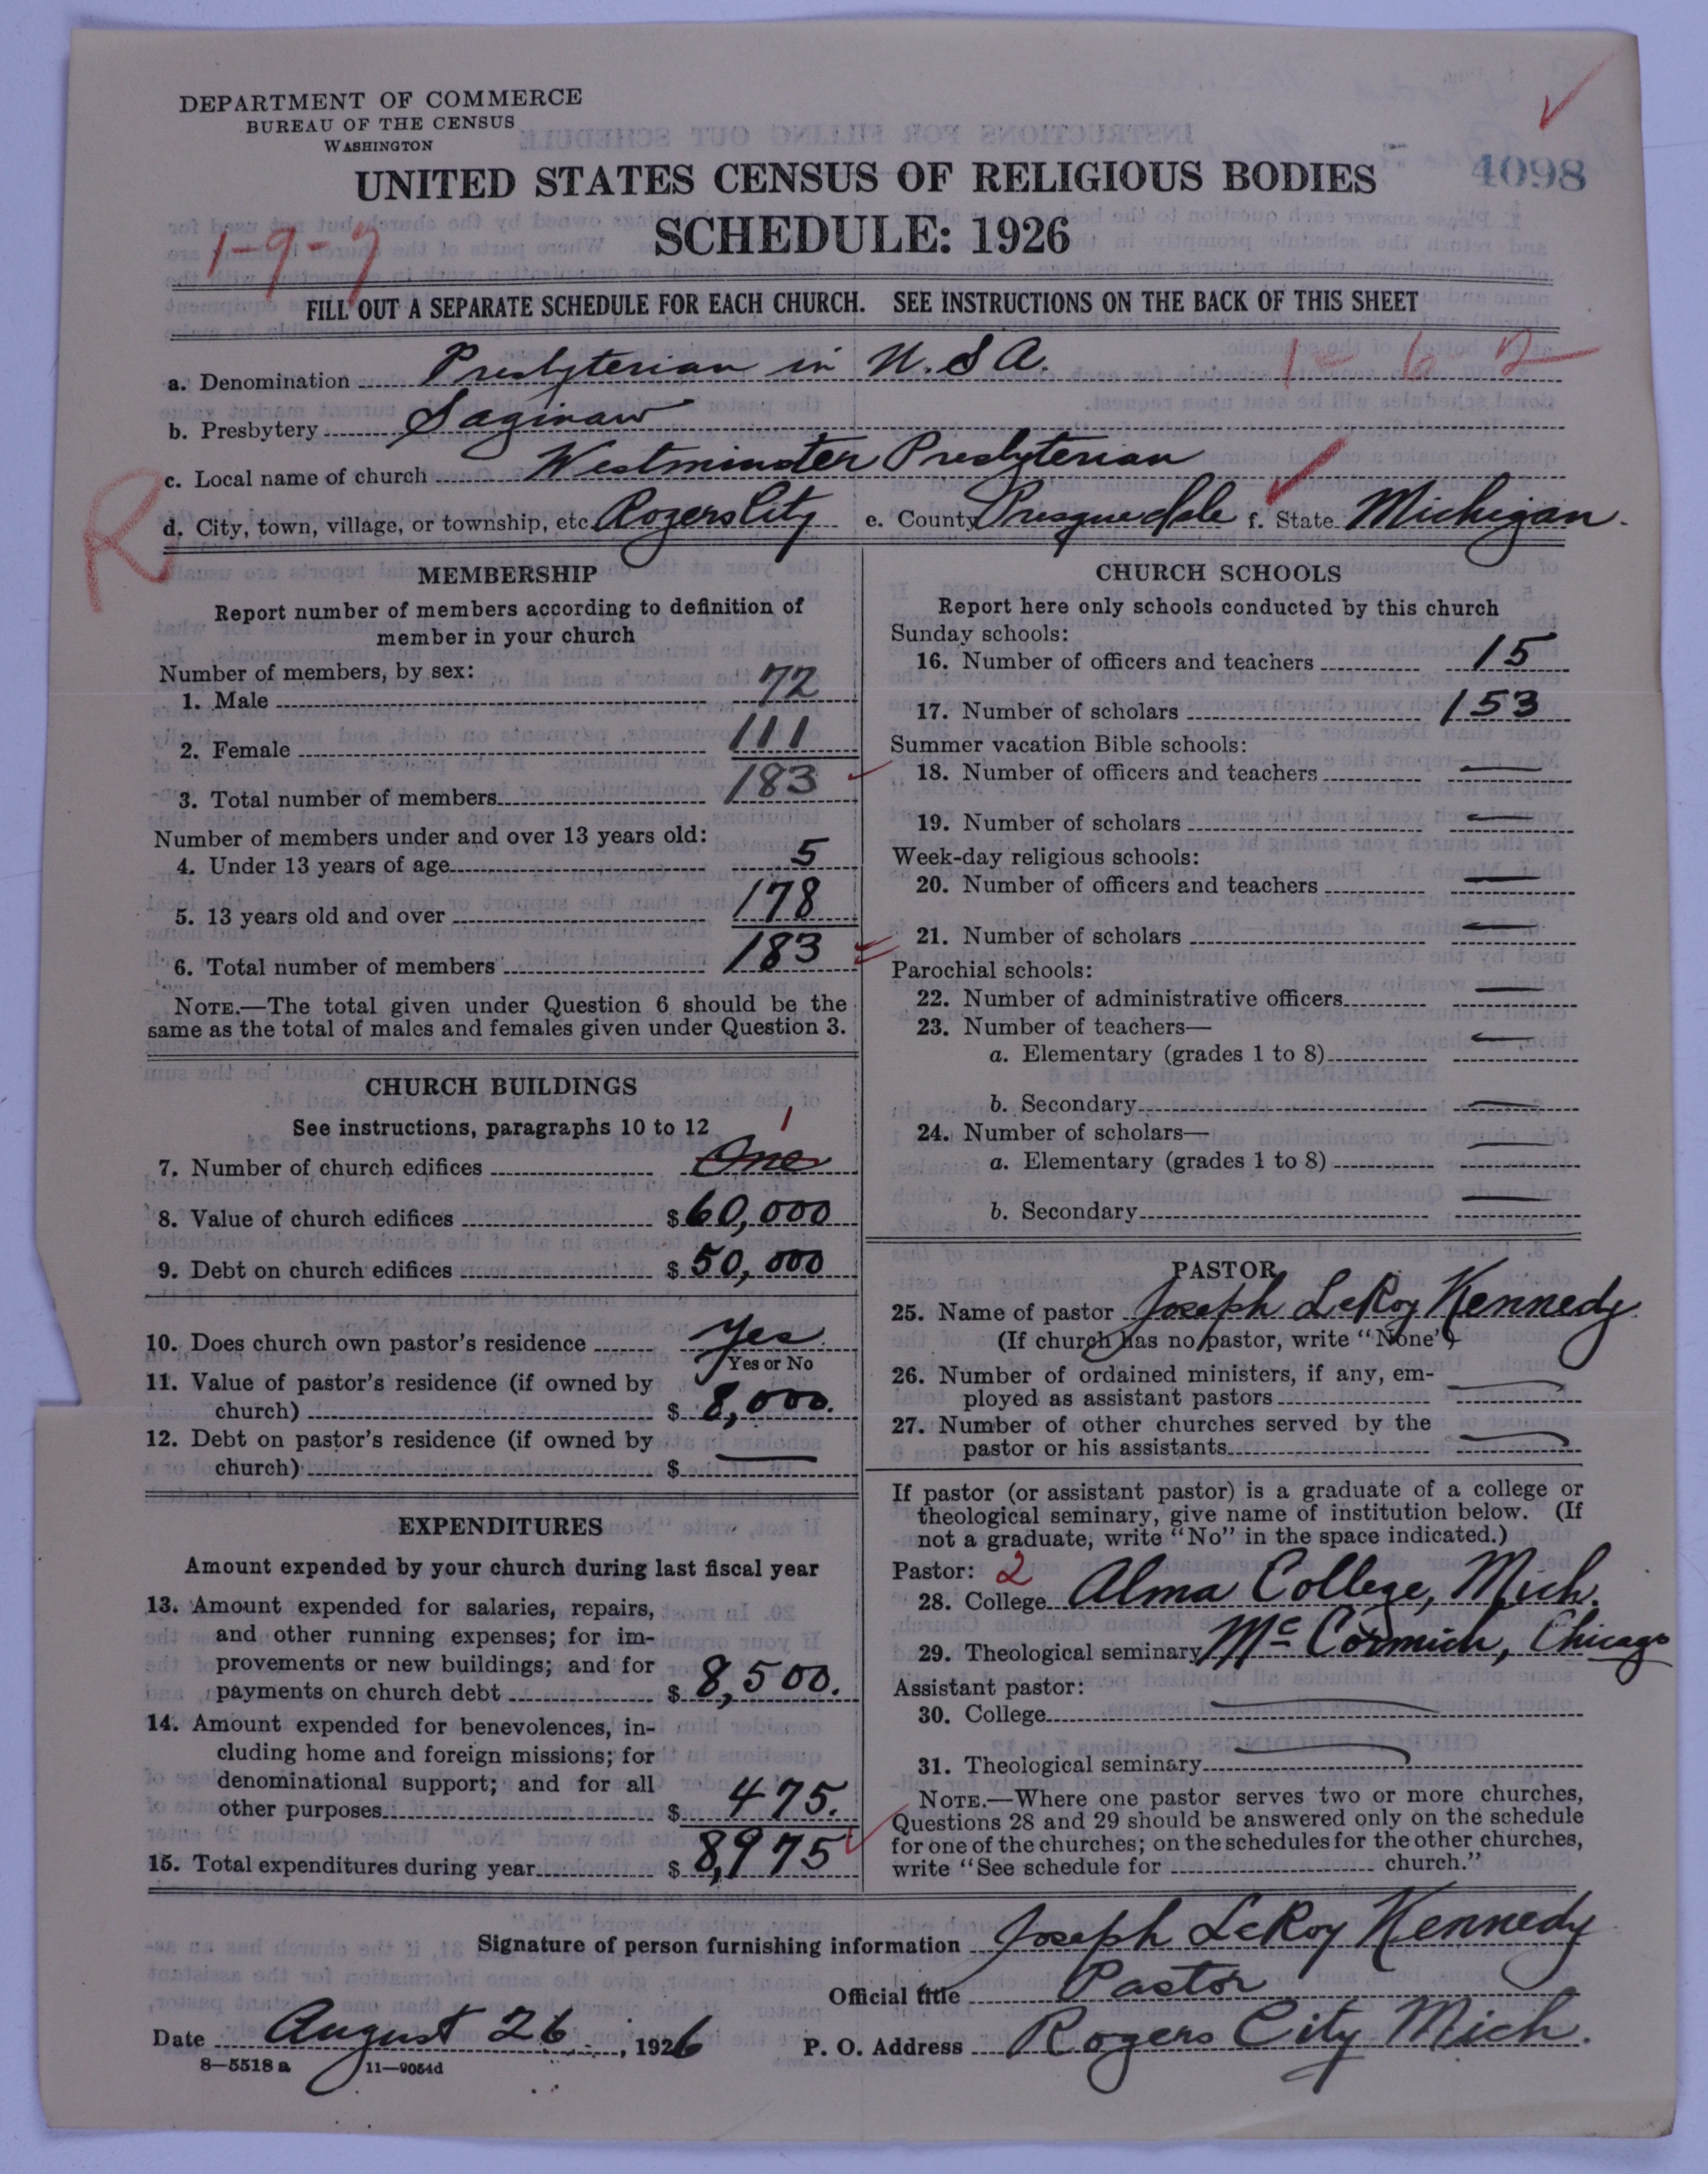 DEPARTMENT OF COMMERCE
BUREAU OF THE CENSUS
WASHINGTON
UNITED STATES CENSUS OF RELIGIOUS BODIES
4098
SCHEDULE: 1926
1-9-7
FILL OUT A SEPARATE SCHEDULE FOR EACH CHURCH. SEE INSTRUCTIONS ON THE BACK OF THIS SHEET
a. Denomination Presbyterian in U.S.A. 1-6-2
b. Presbytery Saginaw
c. Local name of church Westminster Presbyterian
R
d. City, town, village, or township, etc. Rogers City e. County Presque Isle f. State Michigan.
MEMBERSHIP
Report number of members according to definition of
member in your church
Number of members, by sex:
1. Male 72
2. Female 111
3. Total number of members 183
Number of members under and over 13 years old:
4. Under 13 years of age 5
5. 13 years old and over 178
6. Total number of members 183
NOTE.—The total given under Question 6 should be the
same as the total of males and females given under Question 3.
CHURCH BUILDINGS
See instructions, paragraphs 10 to 12
1
7. Number of church edifices One
8. Value of church edifices $ 60,000
9. Debt on church edifices $ 50,000
10. Does church own pastor's residence Yes
Yes or No
11. Value of pastor's residence (if owned by
church) $ 8,000.
12. Debt on pastor's residence (if owned by
church) $ —
EXPENDITURES
Amount expended by your church during last fiscal year
13. Amount expended for salaries, repairs,
and other running expenses; for im-
provements or new buildings; and for
payments on church debt $ 8,500.
14. Amount expended for benevolences, in-
cluding home and foreign missions; for
denominational support; and for all
other purposes $ 475.
15. Total expenditures during year $ 8,975
CHURCH SCHOOLS
Report here only schools conducted by this church
Sunday schools:
16. Number of officers and teachers 15
17. Number of scholars 153
Summer vacation Bible schools:
18. Number of officers and teachers —
19. Number of scholars —
Week-day religious schools:
20. Number of officers and teachers —
21. Number of scholars —
Parochial schools:
22. Number of administrative officers —
23. Number of teachers—
a. Elementary (grades 1 to 8) —
b. Secondary —
24. Number of scholars—
a. Elementary (grades 1 to 8) —
b. Secondary —
PASTOR
25. Name of pastor Joseph LeRoy Kennedy
(If church has no pastor, write "None")
26. Number of ordained ministers, if any, em-
ployed as assistant pastors —
27. Number of other churches served by the
pastor or his assistants —
If pastor (or assistant pastor) is a graduate of a college or
theological seminary, give name of institution below. (If
not a graduate, write "No" in the space indicated.)
Pastor: 2
28. College Alma College, Mich.
29. Theological seminary McCormick, Chicago
Assistant pastor:
30. College —
31. Theological seminary —
NOTE.—Where one pastor serves two or more churches,
Questions 28 and 29 should be answered only on the schedule
for one of the churches; on the schedules for the other churches,
write "See schedule for church."
Signature of person furnishing information Joseph LeRoy Kennedy
Official title Pastor
Date August 26, 1926 P. O. Address Rogers City Mich.
8—5518 a 11—9054d